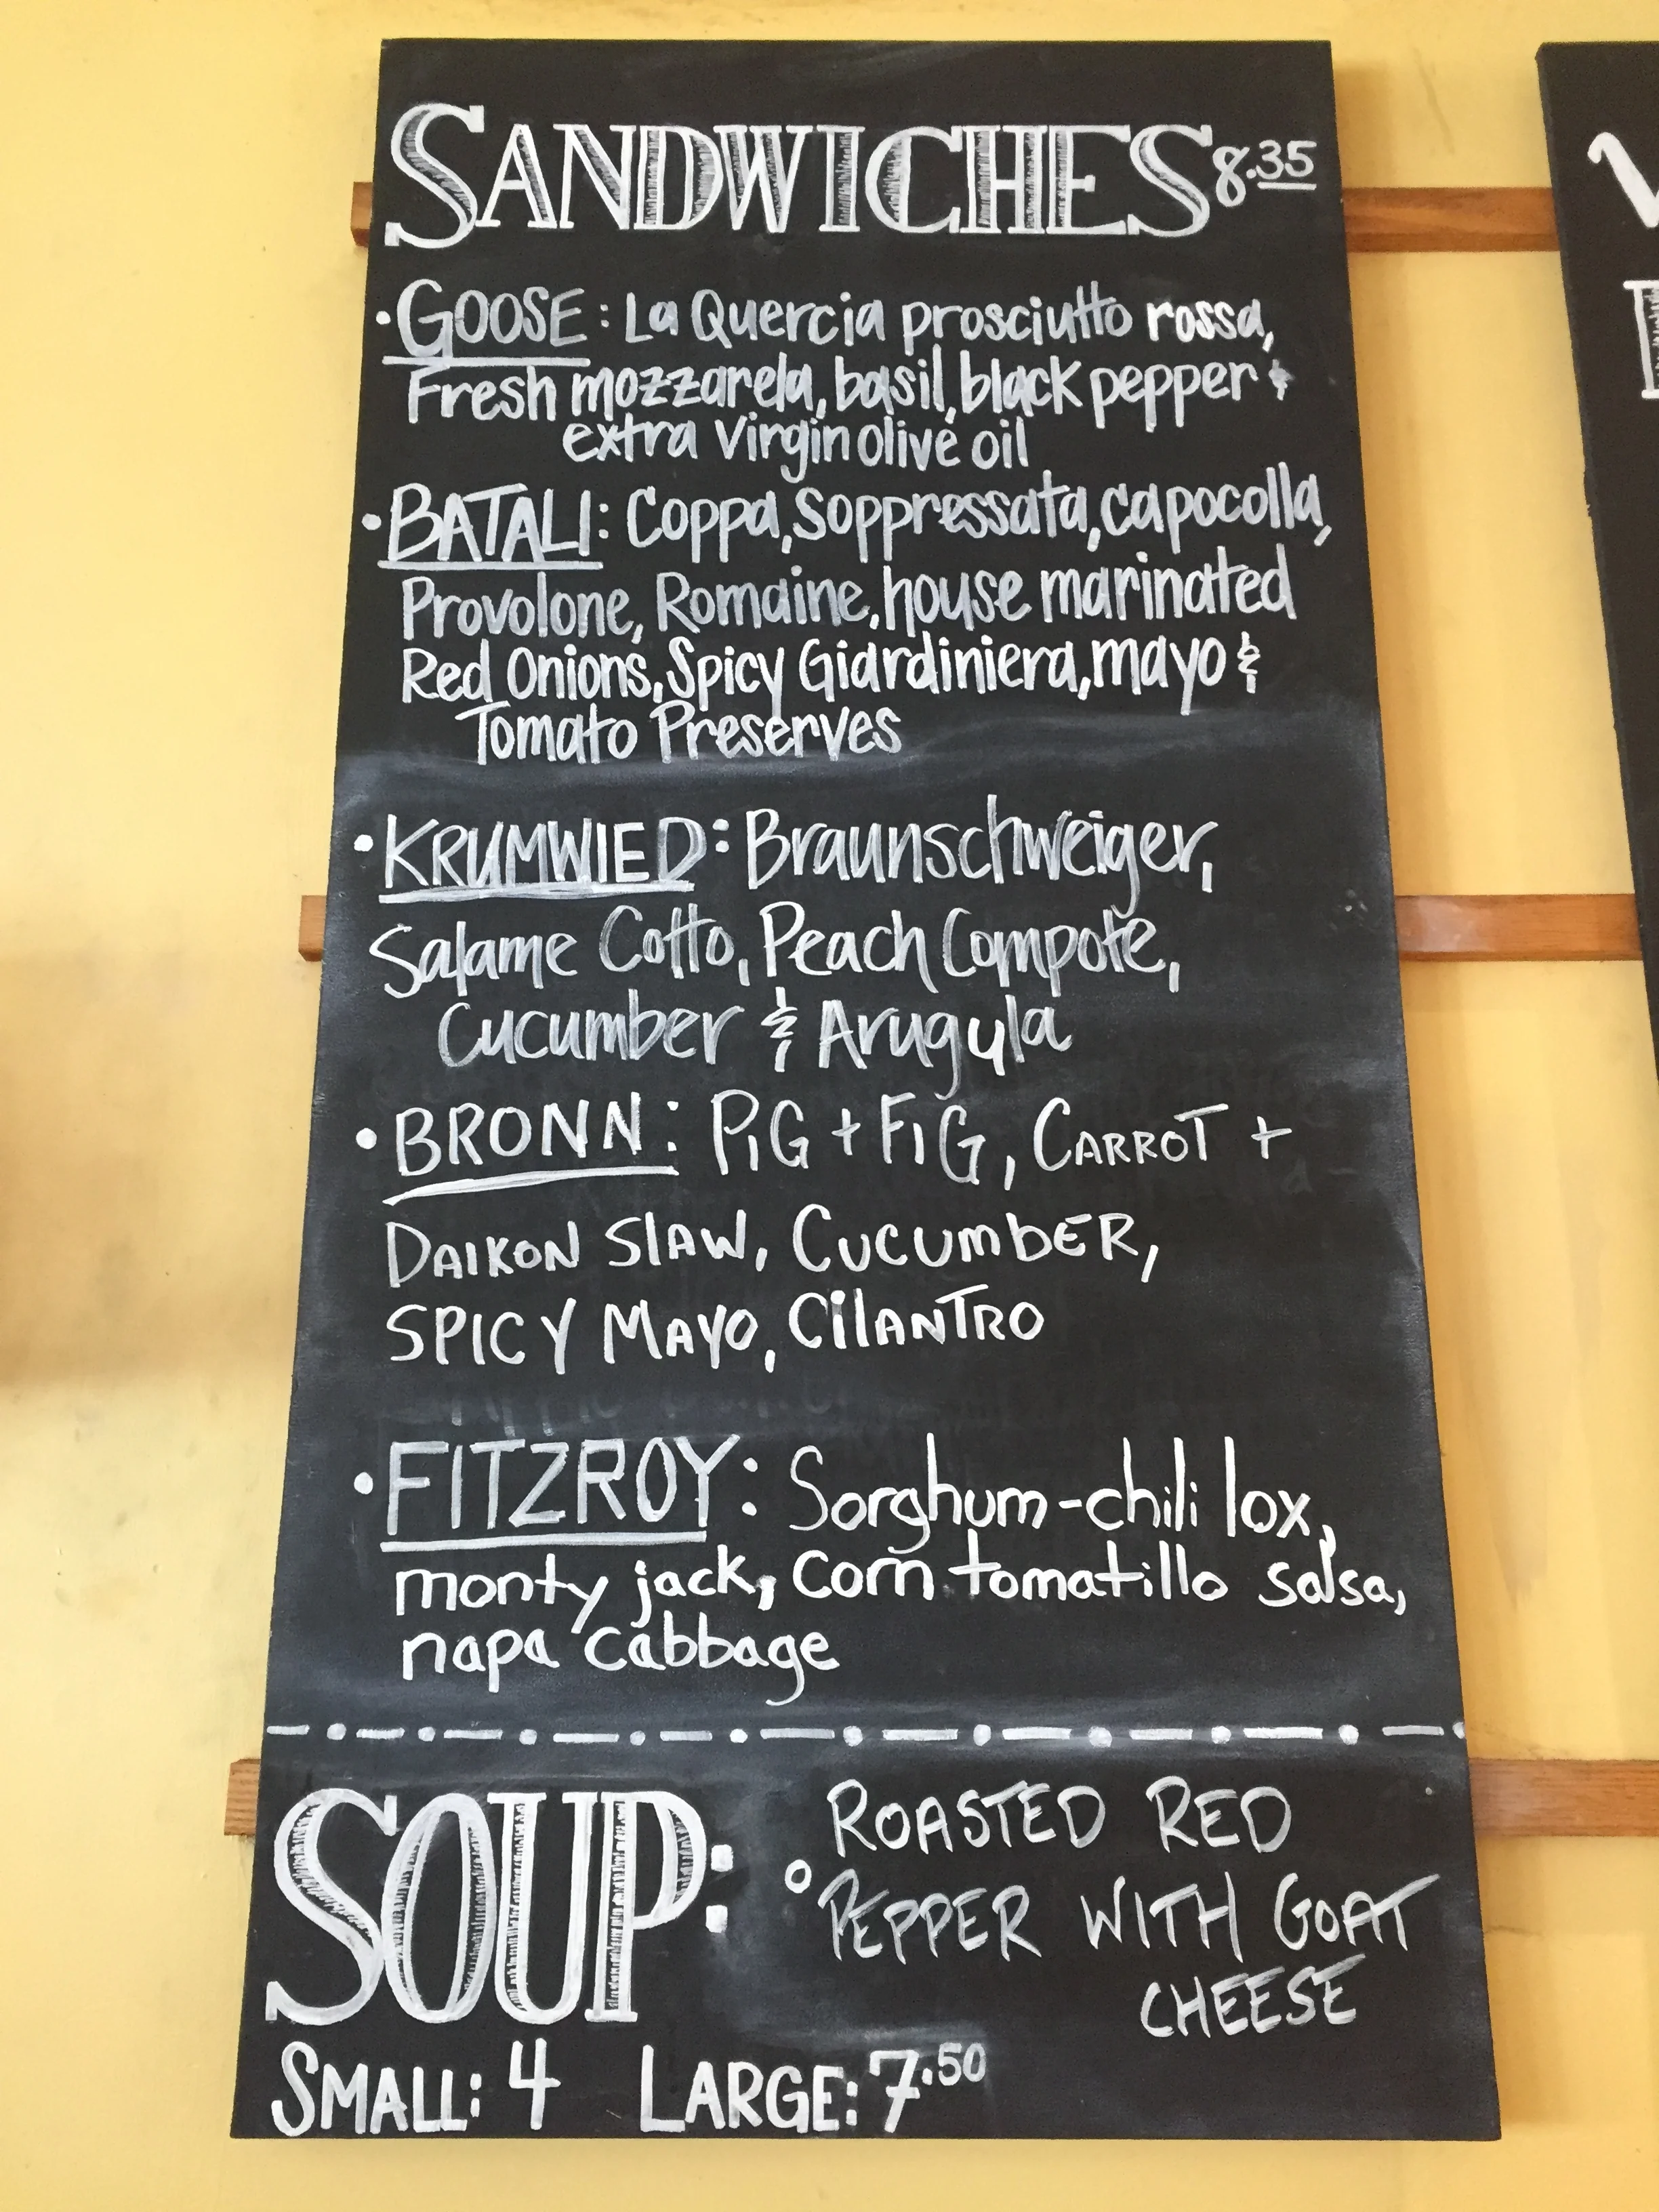 SANDWICHES 8.35
• GOOSE: La Quercia prosciutto rossa,
Fresh mozzarela, basil, black pepper &
extra virgin olive oil
• BATALI: Coppa, Soppressata, capocolla,
Provolone, Romaine, house marinated
Red Onions, Spicy Giardiniera, mayo &
Tomato Preserves
• KRUMWIED: Braunschweiger,
Salame Cotto, Peach Compote,
Cucumber & Arugula
• BRONN: PiG + FiG, CARROT +
DAIKON SlAW, CUCUMbER,
SPICY MAYO, CilANTRO
• FITZROY: Sorghum-chili lox,
monty jack, corn tomatillo salsa,
napa cabbage
SOUP: ROASTED RED
° PEPPER WITH GOAT
CHEESE
SMALL: 4 LARGE: 7.50